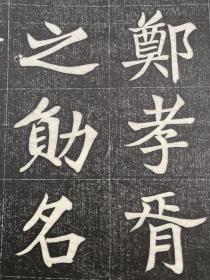 鄭孝胥
之勛名